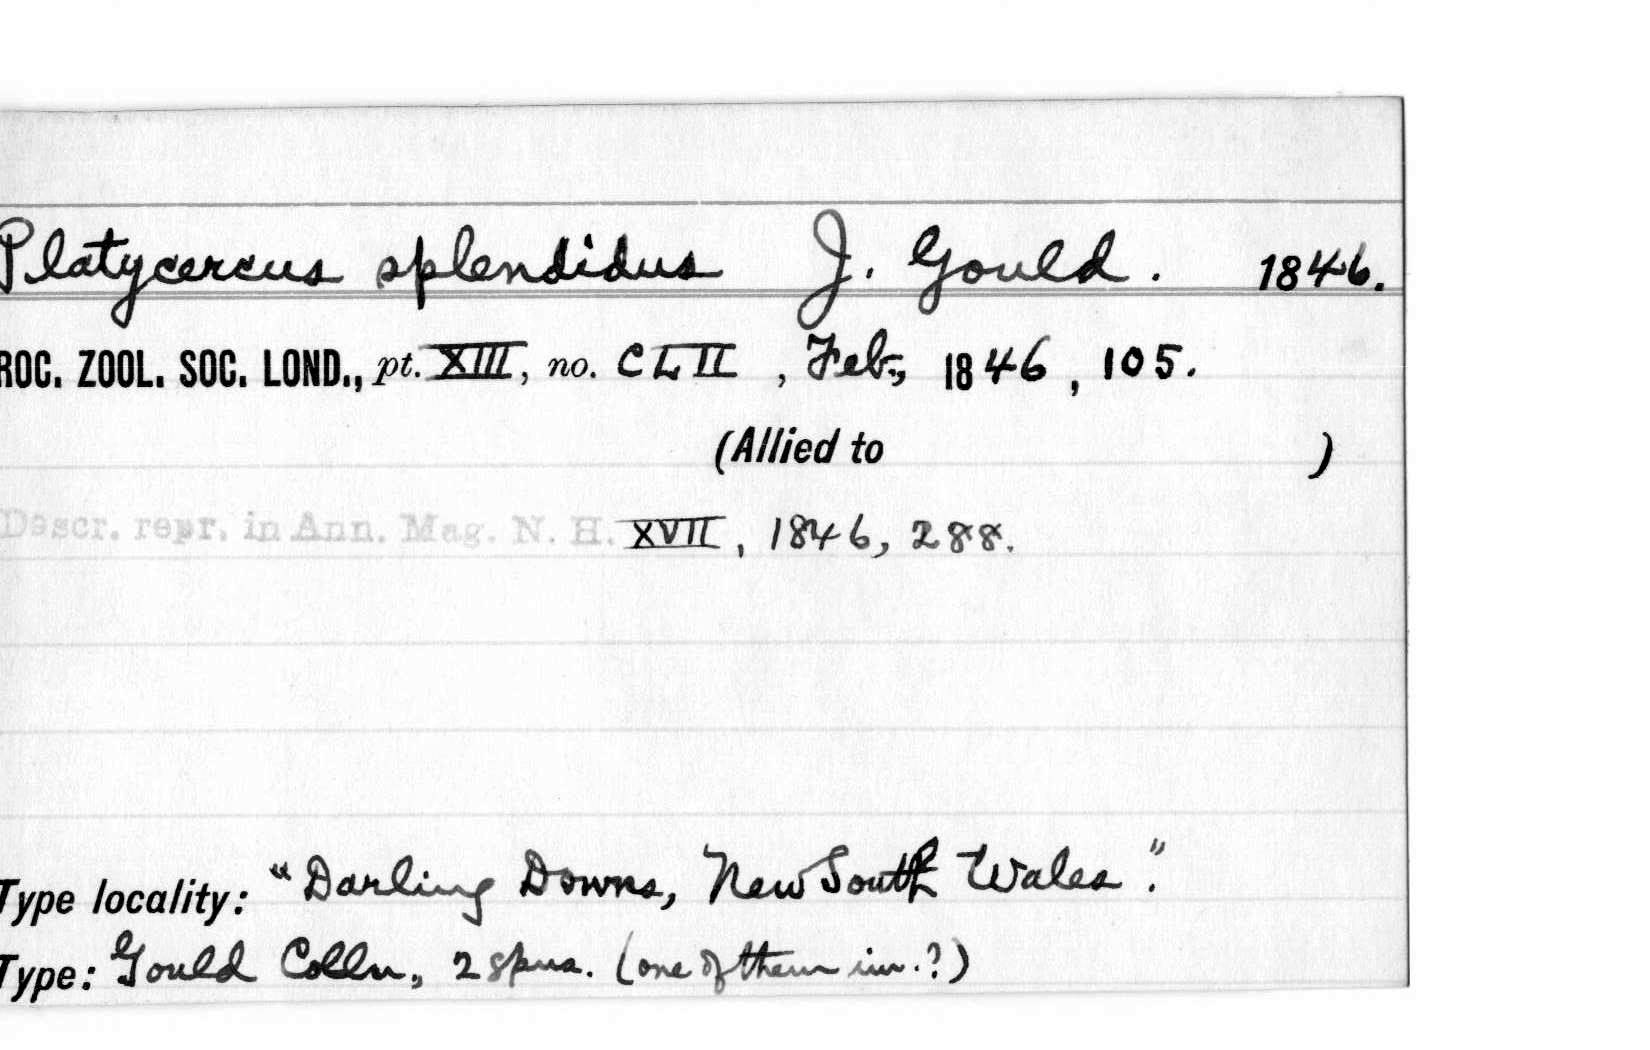 Platycercus splendidus J. Gould. 1846.
ROC. ZOOL. SOC. LOND., pt. XIII, no. CLII, Feb., 1846, 105.
(Allied to )
Descr. repr. in Ann. Mag. N. H. XVII, 1846, 288.
Type locality: "Darling Downs, New South Wales."
Type: Gould Colln., 2 spns. (one of them im.?)